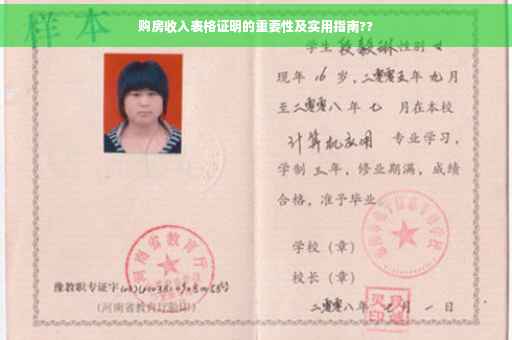 购房收入表格证明的重要性及实用指南??
样本
学生段毅琳性别女
现年16岁,二零零五年九月
至二零零八年七月在本校
计算机应用专业学习,
学制三年,修业期满,成绩
合格,准予毕业
学校(章)
校长(章)
二零零八年七月一日
河南省教育厅
豫教职专证字
(河南省教育厅验印)